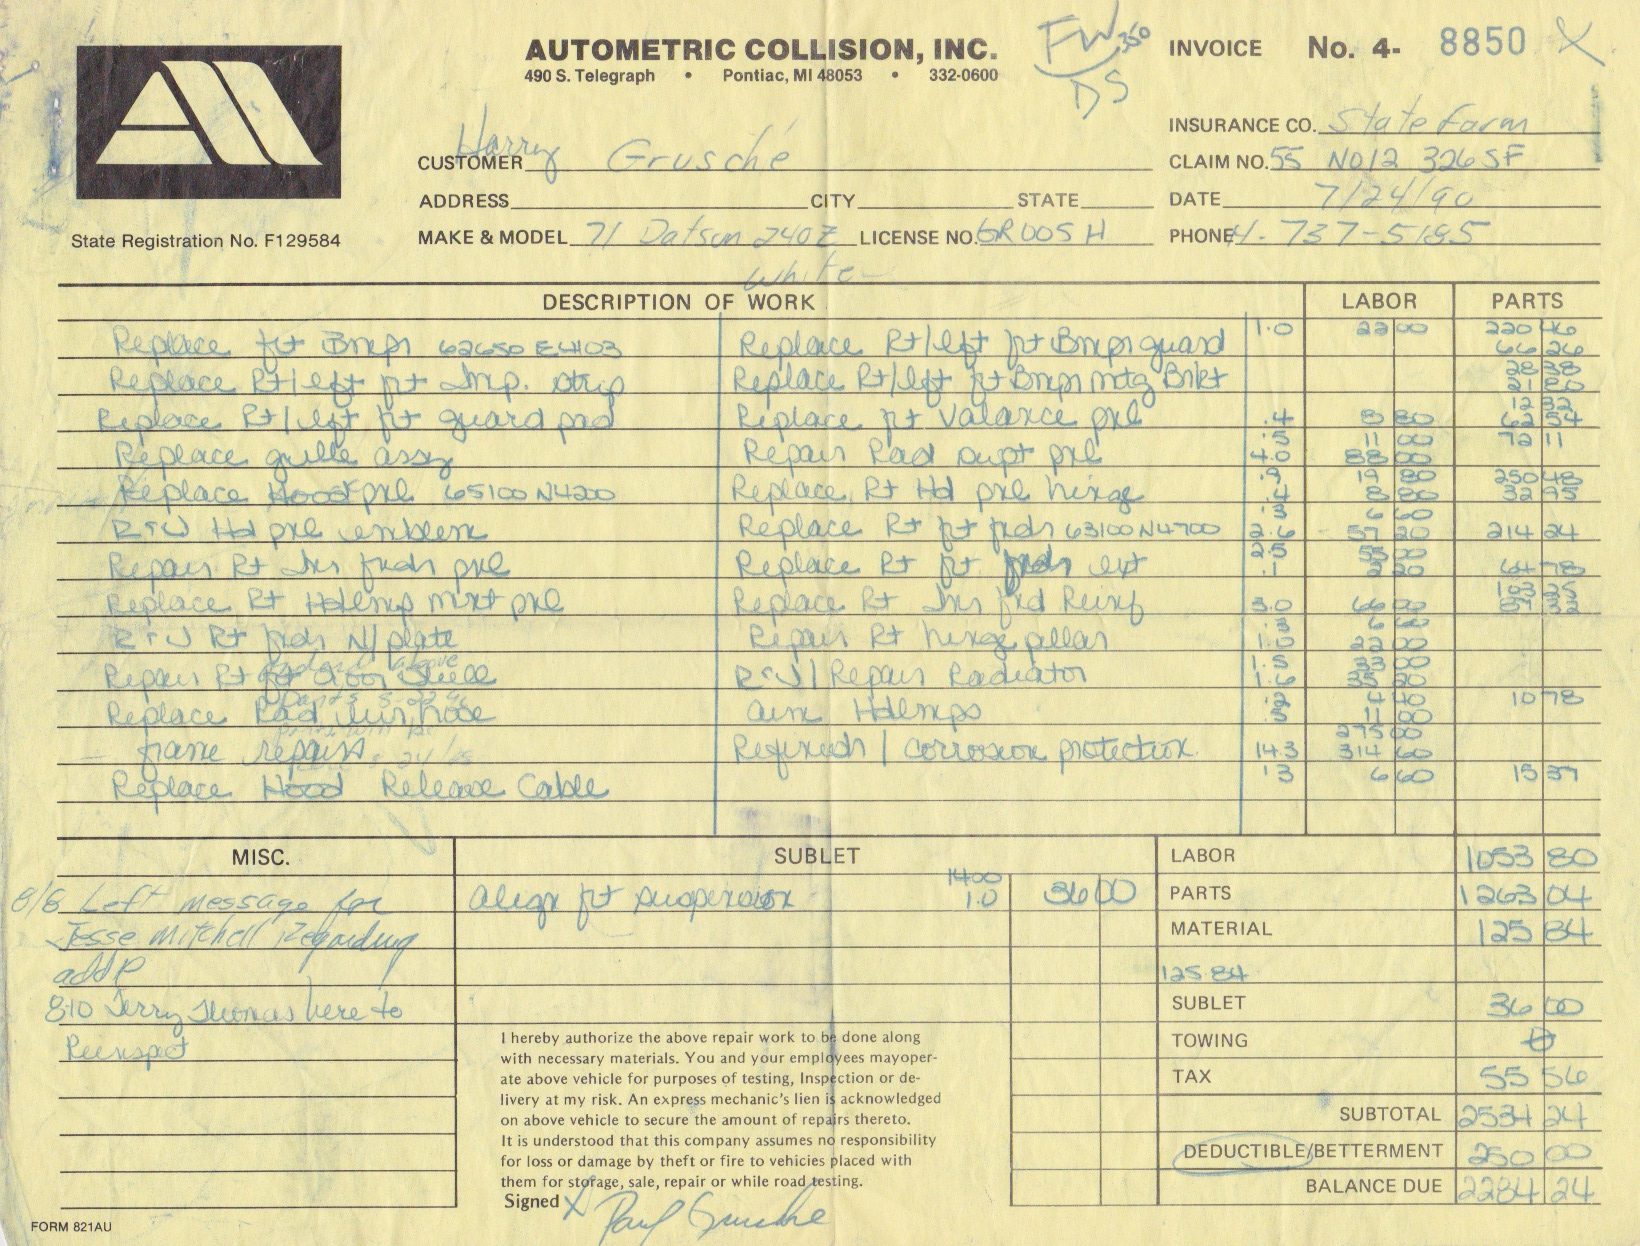 AUTOMETRIC COLLISION, INC.
490 S. Telegraph • Pontiac, MI 48053 • 332-0600
FW 350
DS
INVOICE No. 4- 8850 X
State Registration No. F129584
INSURANCE CO. State Farm
CUSTOMER Harry Grusche
CLAIM NO. 55 N012 326 SF
ADDRESS CITY STATE DATE 7/24/90
MAKE & MODEL 71 Datsun 240Z LICENSE NO. GR005H PHONE 4-737-5185
White
DESCRIPTION OF WORK LABOR PARTS
Replace frt Bmpr 62650 E4103 Replace Rt/left frt Bmpr guard 1.0 22 00 220 46
66 26
Replace Rt/left frt Imp. strip Replace Rt/left frt Bmpr mtg Brkt 28 38
21 80
Replace Rt/left frt guard pad Replace frt Valance pnl .4 8 80 12 32
62 54
Replace grille assy Repair Rad supt pnl .5 11 00 72 11
4.0 88 00
Replace Hood pnl 65100 N4200 Replace Rt Hd pnl hinge .9 19 80 250 48
.4 8 80 32 95
R+I Hd pnl emblem Replace Rt frt frdr 63100 N4700 .3 6 60
2.6 57 20 214 24
Repair Rt Inr frdr pnl Replace Rt frt frdr ext 2.5 55 00
.1 2 20 64 78
Replace Rt Hdlmp mnt pnl Replace Rt Inr frd Reinf 3.0 66 00 103 25
87 32
R+I Rt frdr N/plate Repair Rt hinge pillar .3 6 60
1.0 22 00
Repair Rt frt door shell R+I/Repair Radiator 1.5 33 00
1.6 35 20
Replace Rad hose Aim Hdlmps .2 4 40 10 78
.5 11 00
frame repairs Refinish/corrosion protection 275 00
14.3 314 60
Replace Hood Release Cable .3 6 60 15 37
MISC. SUBLET
8/8 Left message for
Jesse Mitchell Regarding
add P
8-10 Terry Thomas here to
Reinspect
Align frt suspension 1400
1.0 36 00
LABOR 1053 80
PARTS 1263 04
MATERIAL 125 84
125.84
SUBLET 36 00
TOWING 0
TAX 55 56
SUBTOTAL 2534 24
DEDUCTIBLE/BETTERMENT 250 00
BALANCE DUE 2284 24
I hereby authorize the above repair work to be done along
with necessary materials. You and your employees mayoper-
ate above vehicle for purposes of testing, Inspection or de-
livery at my risk. An express mechanic's lien is acknowledged
on above vehicle to secure the amount of repairs thereto.
It is understood that this company assumes no responsibility
for loss or damage by theft or fire to vehicles placed with
them for storage, sale, repair or while road testing.
Signed X Paul Grusche
FORM 821AU